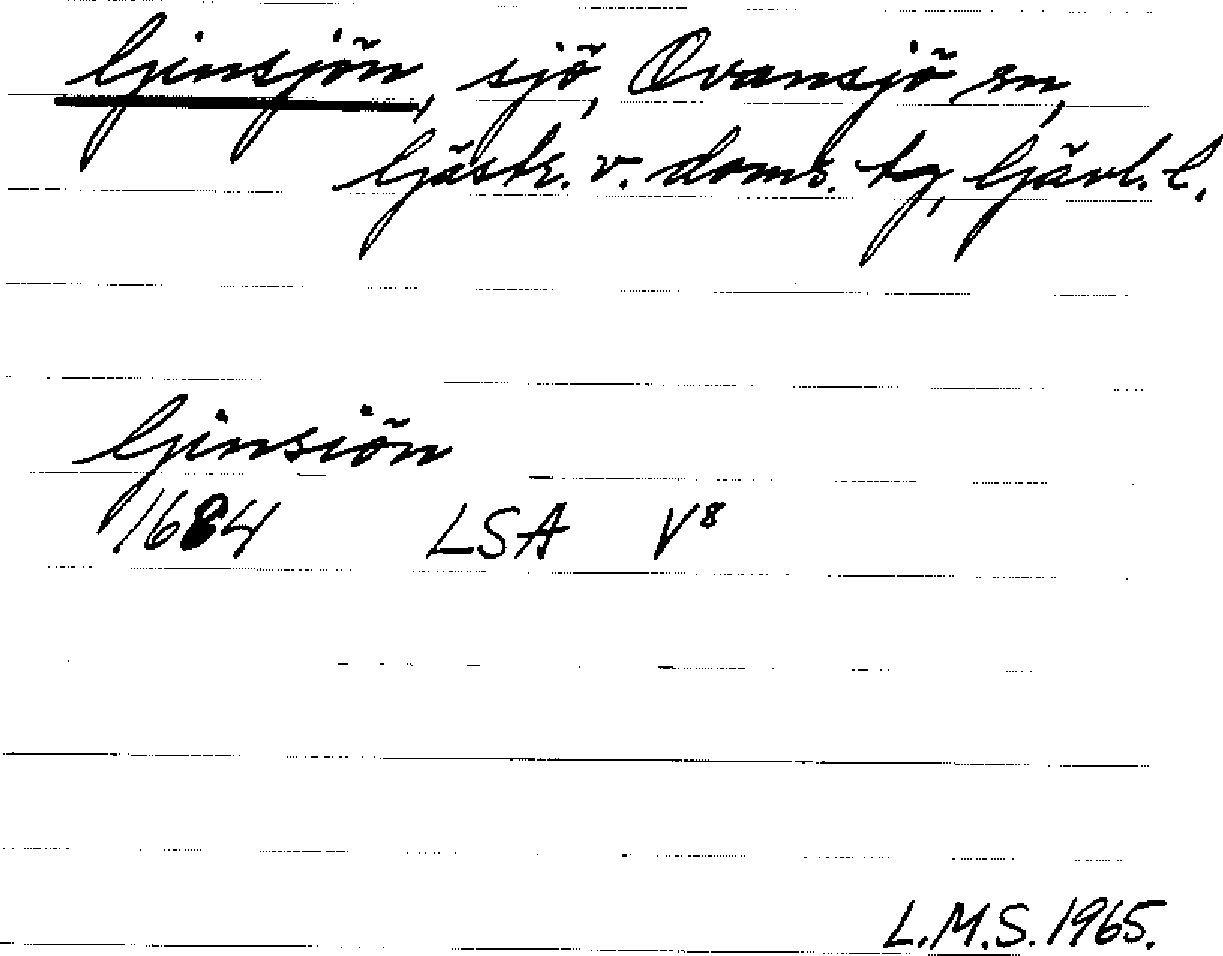 Ginsjön, sjö, Ovansjö sn,
Gästr. v. doms. tg, Gävl. l.
Ginsiön
1684 LSA V⁸
L.M.S. 1965.